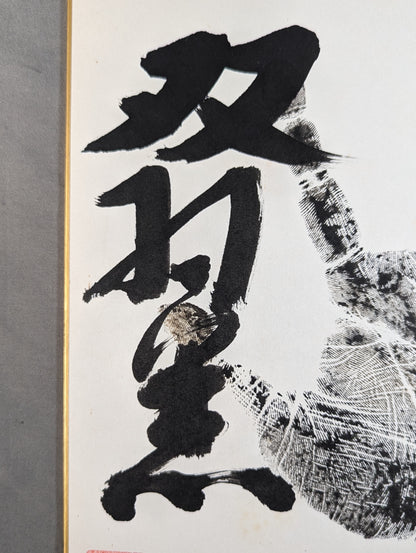 双羽黒